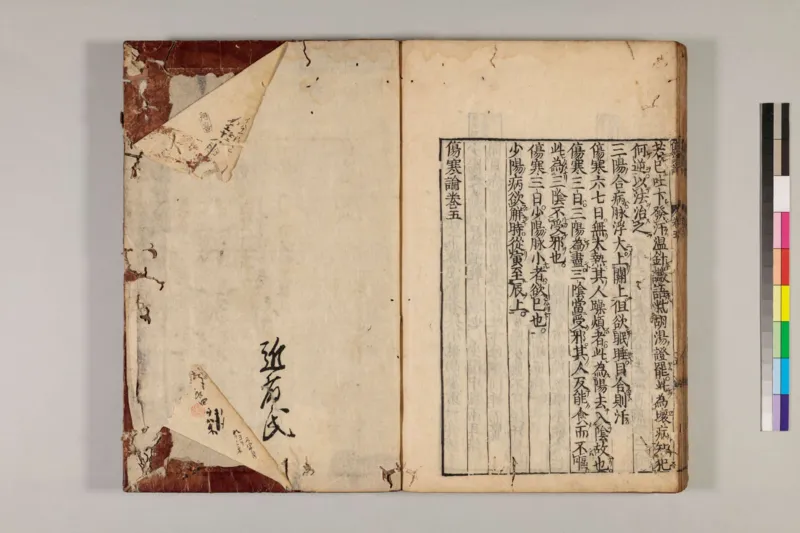 若已吐下發汗温針讝語柴胡湯證罷此為壞病知犯
何逆以法治之
三陽合病脉浮大上關上但欲眠睡目合則汗
傷寒六七日無大熱其人躁煩者此為陽去入陰故也
傷寒三日三陽為盡三陰當受邪其人反能食而不嘔
此為三陰不受邪也。
傷寒三日少陽脉小者欲已也。
少陽病欲解時從寅至辰上。
傷寒論卷五
近 氏